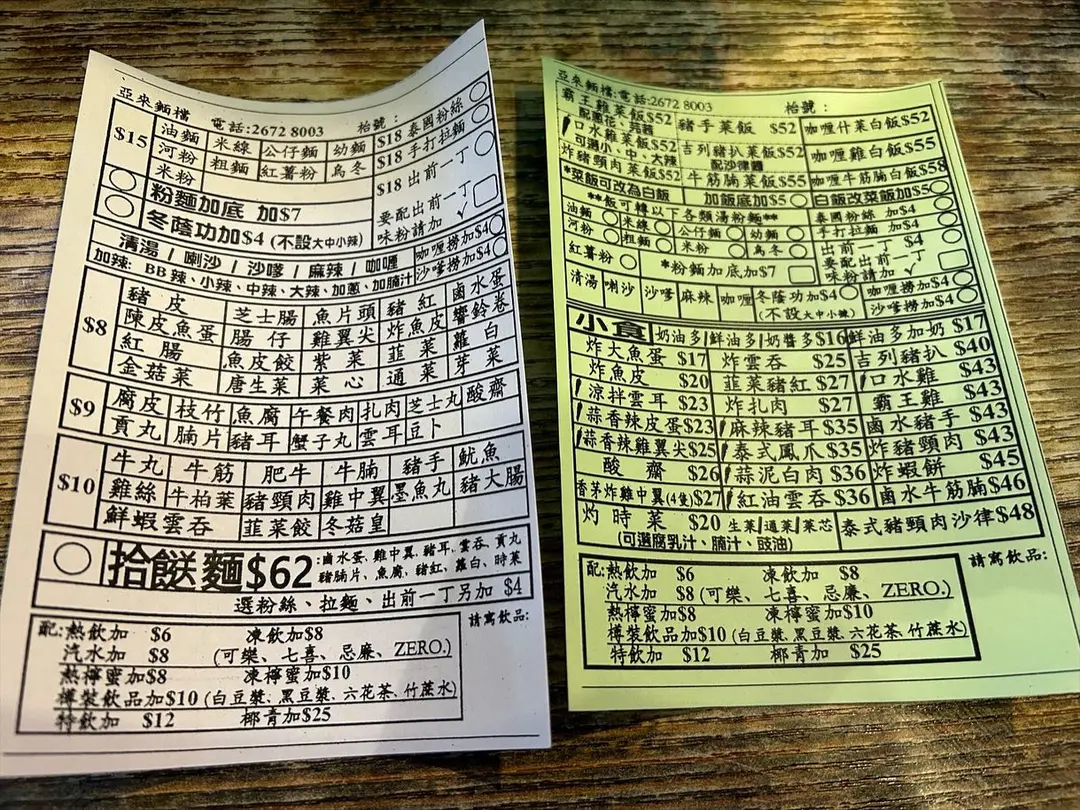 亞來麵檔 電話:2672 8003 枱號：
$15 油麵 米線 公仔麵 幼麵 $18 泰國粉絲
河粉 粗麵 紅薯粉 烏冬 $18 手打拉麵
米粉 $18 出前一丁
粉麵加底 加$7 要配出前一丁
冬蔭功加$4 (不設大中小辣) 味粉請加 ✓
清湯 / 喇沙 / 沙嗲 / 麻辣 / 咖喱 咖喱撈加$4
加辣: BB辣、小辣、中辣、大辣、加蔥、加腩汁 沙嗲撈加$4
$8 豬皮 芝士腸 魚片頭 豬紅 鹵水蛋
陳皮魚蛋 腸仔 雞翼尖 炸魚皮 響鈴卷
紅腸 魚皮餃 紫菜 韮菜 蘿白
金菇菜 唐生菜 菜心 通菜 芽菜
$9 腐皮 枝竹 魚腐 午餐肉 扎肉 芝士丸 酸齋
貢丸 腩片 豬耳 蟹子丸 雲耳 豆卜
$10 牛丸 牛筋 肥牛 牛腩 豬手 魷魚
雞絲 牛柏葉 豬頸肉 雞中翼 墨魚丸 豬大腸
鮮蝦雲吞 韮菜餃 冬菇皇
拾餸麵$62 :鹵水蛋、雞中翼、豬耳、雲吞、貢丸
豬腩片、魚腐、豬紅、蘿白、時菜
選粉絲、拉麵、出前一丁另加 $4
請寫飲品:
配:熱飲加 $6 凍飲加$8
汽水加 $8 (可樂、七喜、忌廉、ZERO.)
熱檸蜜加$8 凍檸蜜加$10
樽裝飲品加$10 (白豆漿、黑豆漿、六花茶、竹蔗水)
特飲加 $12 椰青加$25
亞來麵檔:電話:2672 8003 枱號：
霸王雞菜飯$52 豬手菜飯 $52 咖喱什菜白飯$52
配蔥花、芫茜
口水雞菜飯$52 吉列豬扒菜飯$52 咖喱雞白飯$55
可選小、中、大辣 配沙律醬
炸豬頸肉菜飯$52 牛筋腩菜飯$55 咖喱牛筋腩白飯$58
*菜飯可改為白飯 加飯底加$5 白飯改菜飯加$5
**飯可轉以下各類湯粉麵** 泰國粉絲 加$4
油麵 米線 公仔麵 幼麵 手打拉麵 加$4
河粉 粗麵 米粉 烏冬 出前一丁 $4
紅薯粉 *粉麵加底加$7 要配出前一丁
味粉請加 ✓
清湯 喇沙 沙嗲 麻辣 咖喱 冬蔭功加$4 咖喱撈加$4
(不設大中小辣) 沙嗲撈加$4
小食 奶油多 鮮油多 奶醬多$16 鮮油多加奶 $17
炸大魚蛋 $17 炸雲吞 $25 吉列豬扒 $40
炸魚皮 $20 韮菜豬紅 $27 口水雞 $43
涼拌雲耳 $23 炸扎肉 $27 霸王雞 $43
蒜香辣皮蛋$23 麻辣豬耳$35 鹵水豬手 $43
蒜香辣雞翼尖$25 泰式鳳爪$35 炸豬頸肉 $43
酸齋 $26 蒜泥白肉 $36 炸蝦餅 $45
香茅炸雞中翼(4隻)$27 紅油雲吞 $36 鹵水牛筋腩$46
灼時菜 $20 生菜 通菜 菜芯 泰式豬頸肉沙律$48
(可選腐乳汁、腩汁、豉油)
請寫飲品:
配:熱飲加 $6 凍飲加 $8
汽水加 $8 (可樂、七喜、忌廉、ZERO.)
熱檸蜜加$8 凍檸蜜加$10
樽裝飲品加$10 (白豆漿、黑豆漿、六花茶、竹蔗水)
特飲加 $12 椰青加 $25